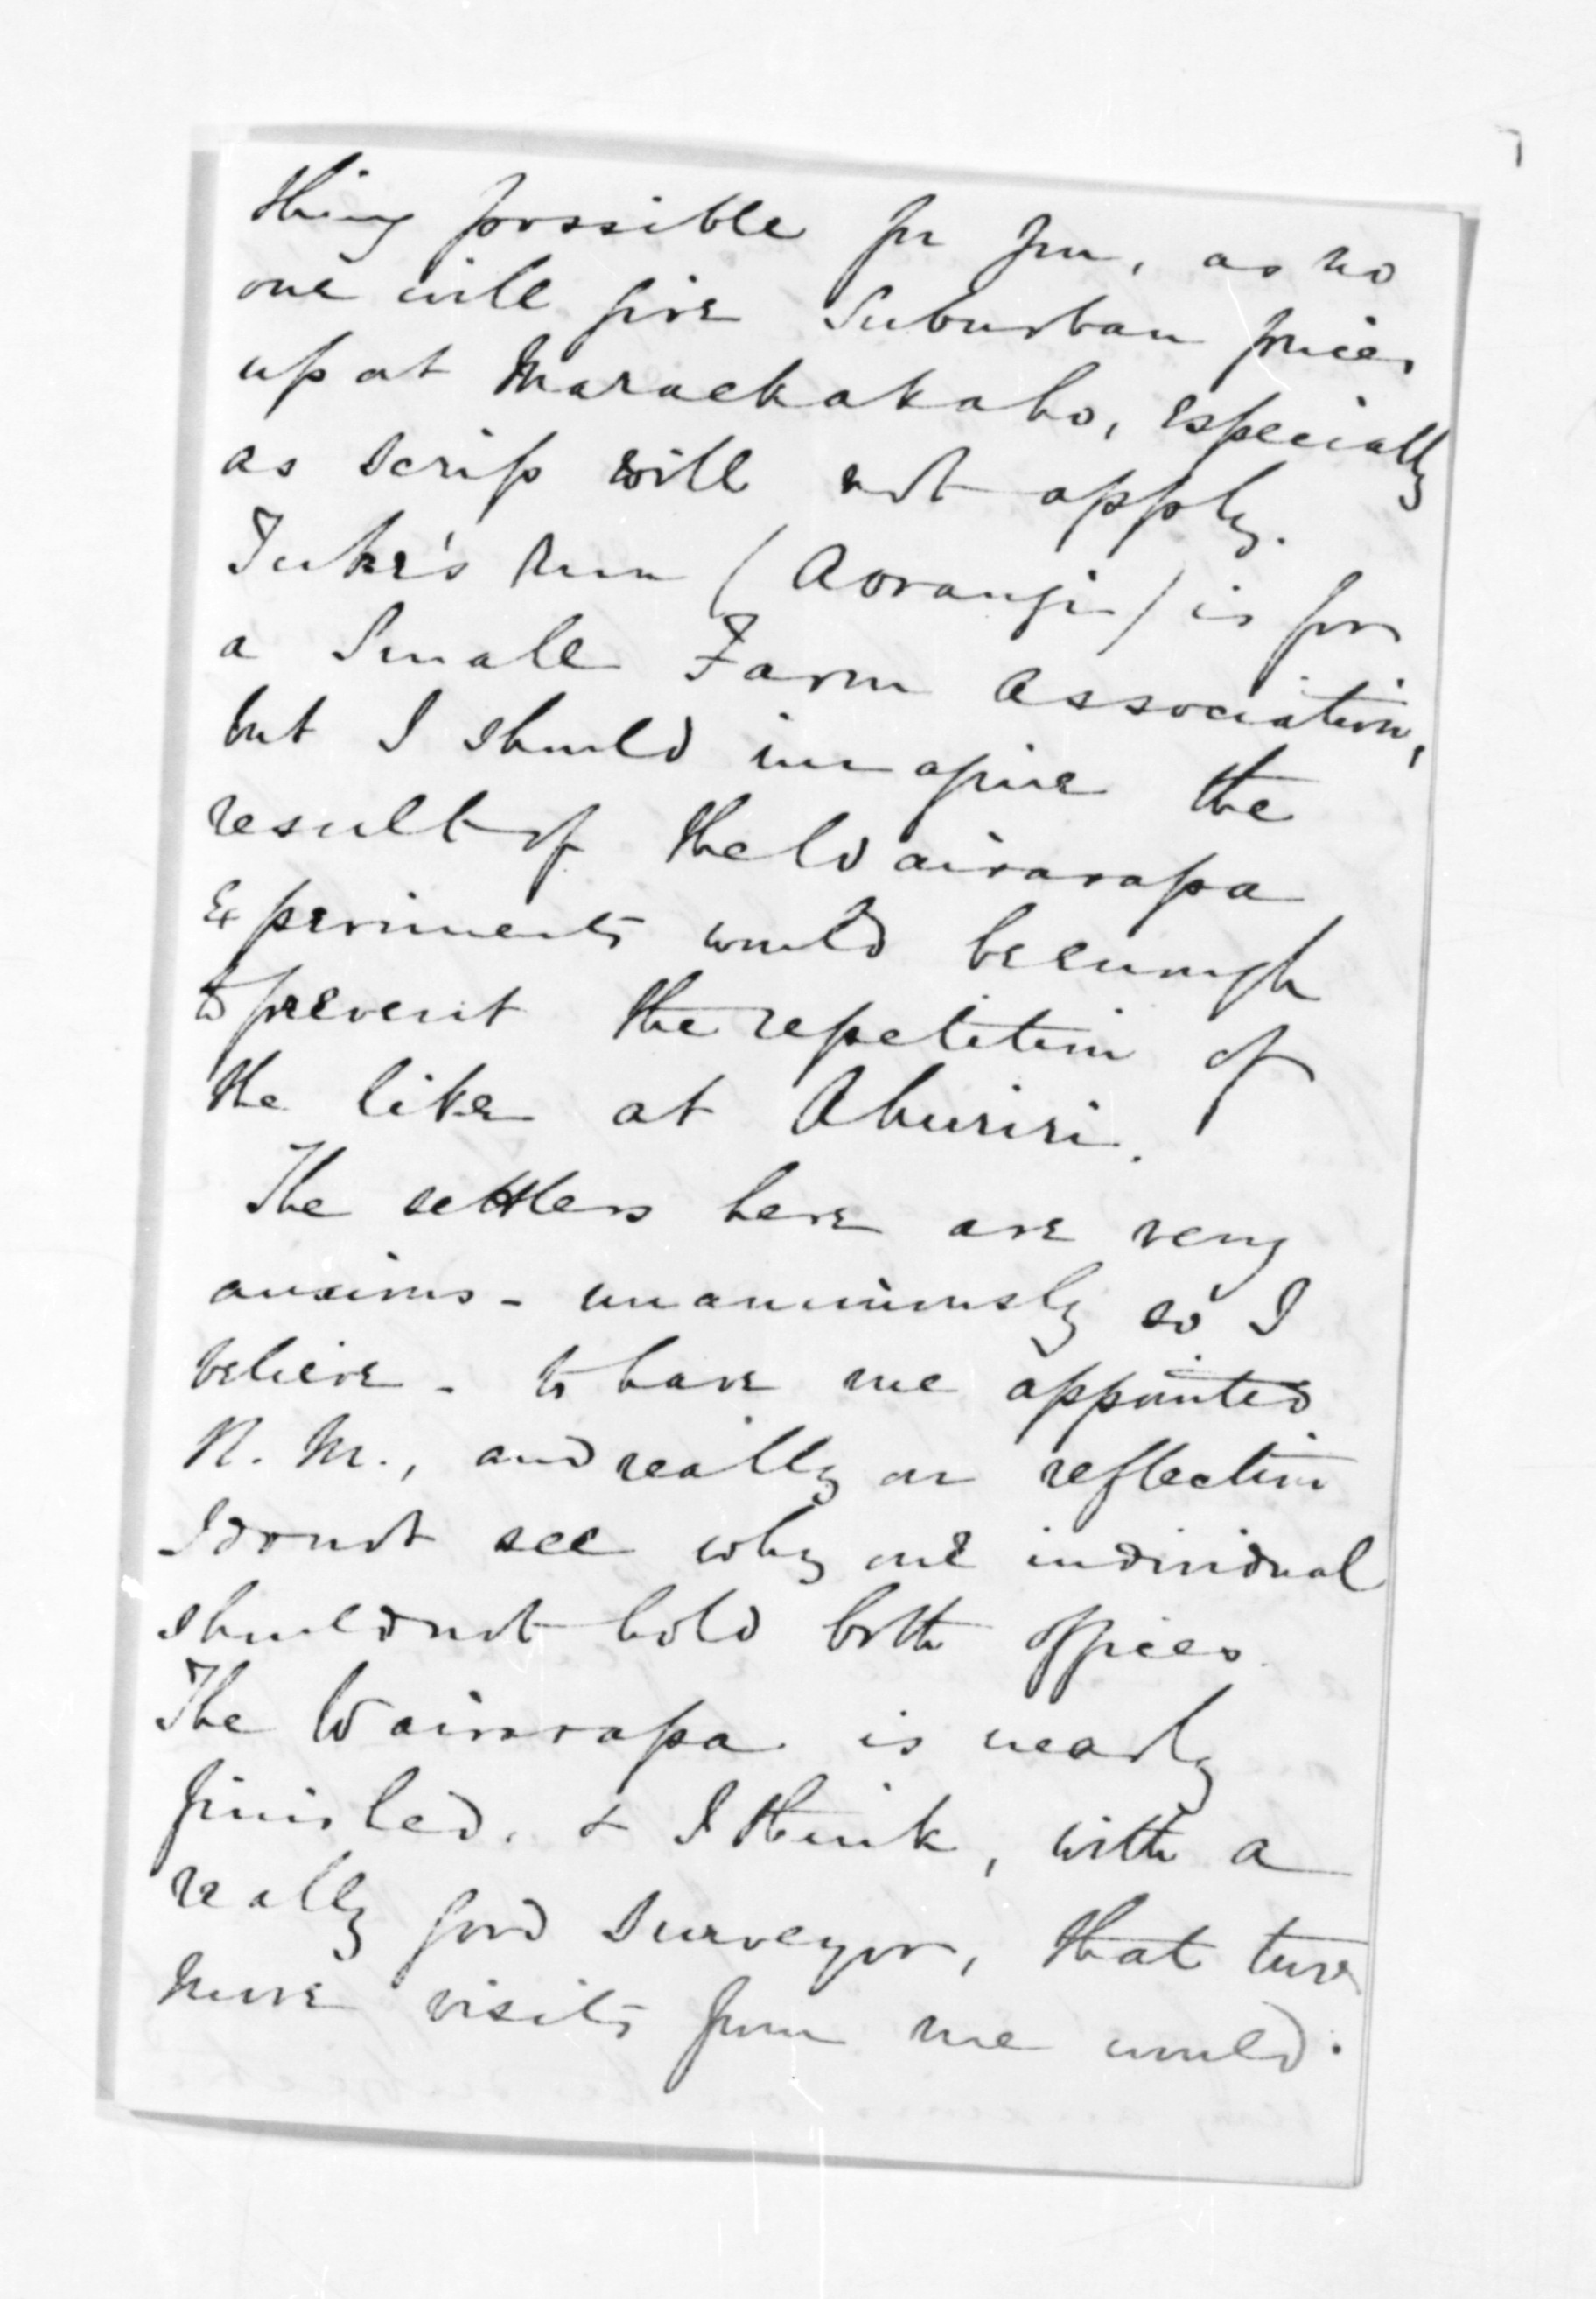 thing possible for you, as no
one will give Suburban prices
up at Maraekakaho, especially
as scrip will not apply.
Tuke's run (Aorangi) is for
a Small Farm Association,
but I should imagine the
result of the Wairarapa
Experiments would be enough
to prevent the repetition of
the like at Ahuriri.
The settlers here are very
anxious - unanimously so I
believe - to have me appointed
R. M., and really on reflection
I do not see why one individual
should not hold both offices.
The Wairarapa is nearly
finished, & I think, with a
really good surveyor, that two
more visits from me would.